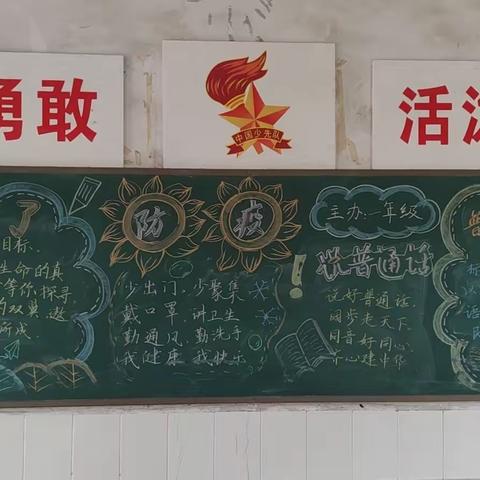 勇敢
中国少先队
活泼
了
目标、
生命的真
等你,探寻
的双翼,遨
所成
防疫
少出门、少聚集
戴口罩、讲卫生
勤通风、勤洗手
我健康、我快乐
主办:一年级
说普通话
说好普通话,
同步走天下,
同音好同心,
齐心建中华
普